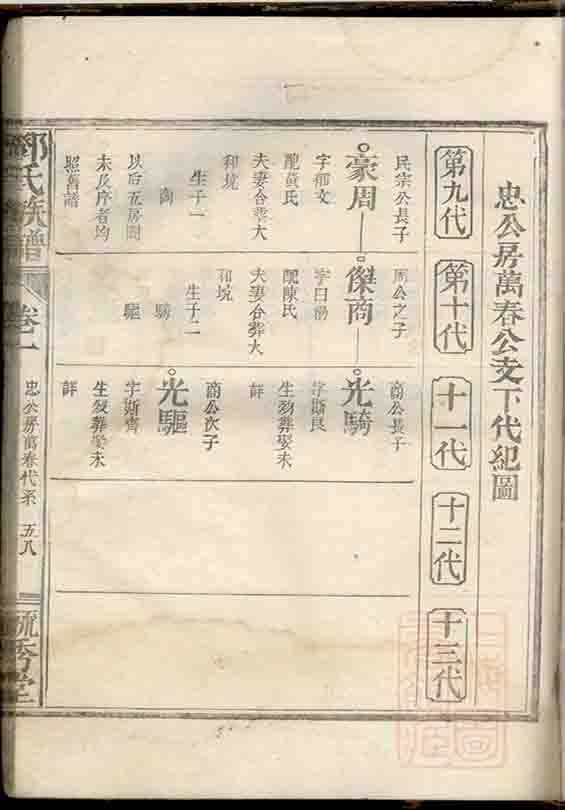 忠公房萬春公支下代紀圖
第九代
第十代
十一代
十二代
十三代
民宗公長子
豪周
字郁文
配黃氏
夫妻合葬大
和坑
生子一
商
以后五房間
未反序者均
照舊譜
周公之子
傑商
字曰湯
配陳氏
夫妻合葬大
和坑
生子二
騎
驅
商公長子
光騎
字斯良
生歿葬娶未
詳
商公次子
光驅
字斯齊
生歿葬娶未
詳
氏族譜
卷一
忠公房萬春代系
五八
毓秀堂